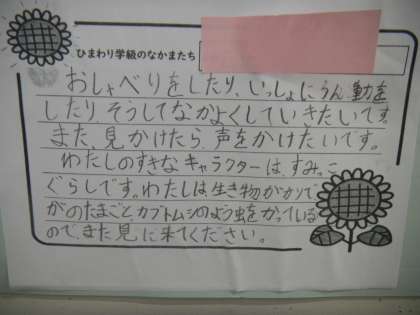 ひまわり学級のなかまたち
おしゃべりをしたり、いっしょにうん動を
したり、そうしてなかよくしていきたいです。
また、見かけたら、声をかけたいです。
わたしのすきなキャラクターは、すみっこ
ぐらしです。わたしは、生き物がかりで
がのたまごと、カブトムシのよう虫をかっている
ので、また見に来てください。